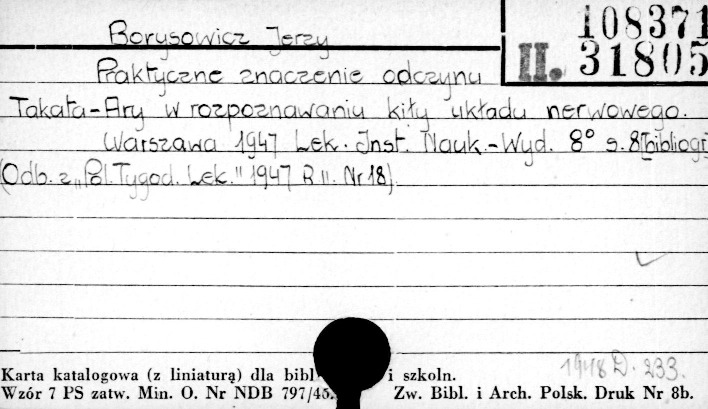 108371
Borysowicz Jerzy
II. 31805
Praktyczne znaczenie odczynu
Takata-Ary w rozpoznawaniu kiły układu nerwowego.
Warszawa 1947 Lek. Inst. Nauk.-Wyd. 8° s. 8 [bibliogr]
(Odb. z „Pol. Tygod. Lek." 1947 R II. Nr 18).
1948 D. 233.
Karta katalogowa (z liniaturą) dla bibl i szkoln.
Wzór 7 PS zatw. Min. O. Nr NDB 797/45. Zw. Bibl. i Arch. Polsk. Druk Nr 8b.